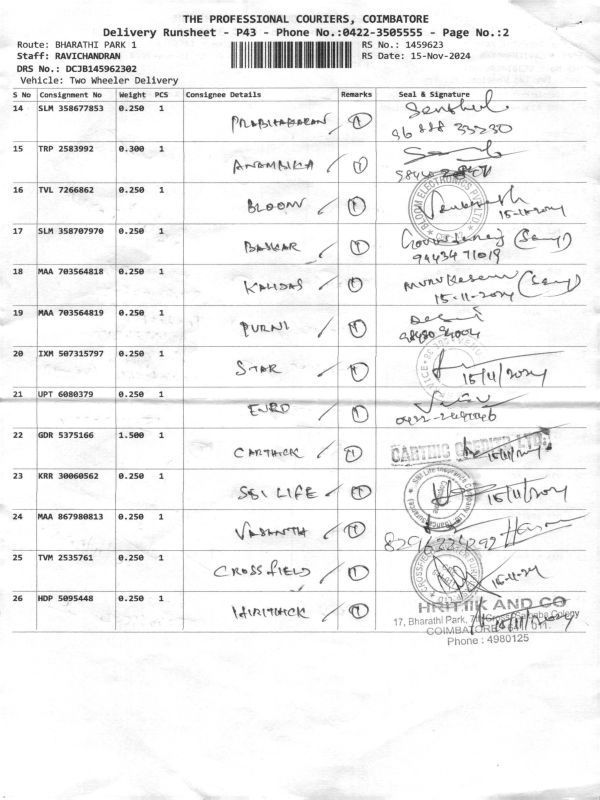 THE PROFESSIONAL COURIERS, COIMBATORE
Delivery Runsheet - P43 - Phone No.:0422-3505555 - Page No.:2
Route: BHARATHI PARK 1 RS No.: 1459623
Staff: RAVICHANDRAN RS Date: 15-Nov-2024
DRS No.: DCJB145962302
Vehicle: Two Wheeler Delivery
S No Consignment No Weight PCS Consignee Details Remarks Seal & Signature
14 SLM 358677853 0.250 1 PRABHAKARAN 1
15 TRP 2583992 0.300 1 ANAMBIKA 1
16 TVL 7266862 0.250 1 BLOOM 1
BLOOM ELECTRONICS PVT LTD 15-11-2024
17 SLM 358707970 0.250 1 BASKAR 1
94434 71019
18 MAA 703564818 0.250 1 KALIDAS 1 Murukesan
15-11-2024
19 MAA 703564819 0.250 1 PURNI 1
20 IXM 507315797 0.250 1 STAR 1
15/11/2024
21 UPT 6080379 0.250 1 EURO 1
22 GDR 5375166 1.500 1 CARTHICK 1
15/11/2024
23 KRR 30060562 0.250 1 SBI LIFE 1
SBI Life Insurance Company 15/11/2024
24 MAA 867980813 0.250 1 VASANTH 1
25 TVM 2535761 0.250 1 CROSSFIELD 1
15-11-24
26 HDP 5095448 0.250 1 HIRITHICK 1
HRITIK AND CO
17, Bharathi Park, 7th Cross, Saibaba Colony
COIMBATORE - 641 011.
15/11/2024
Phone : 4980125